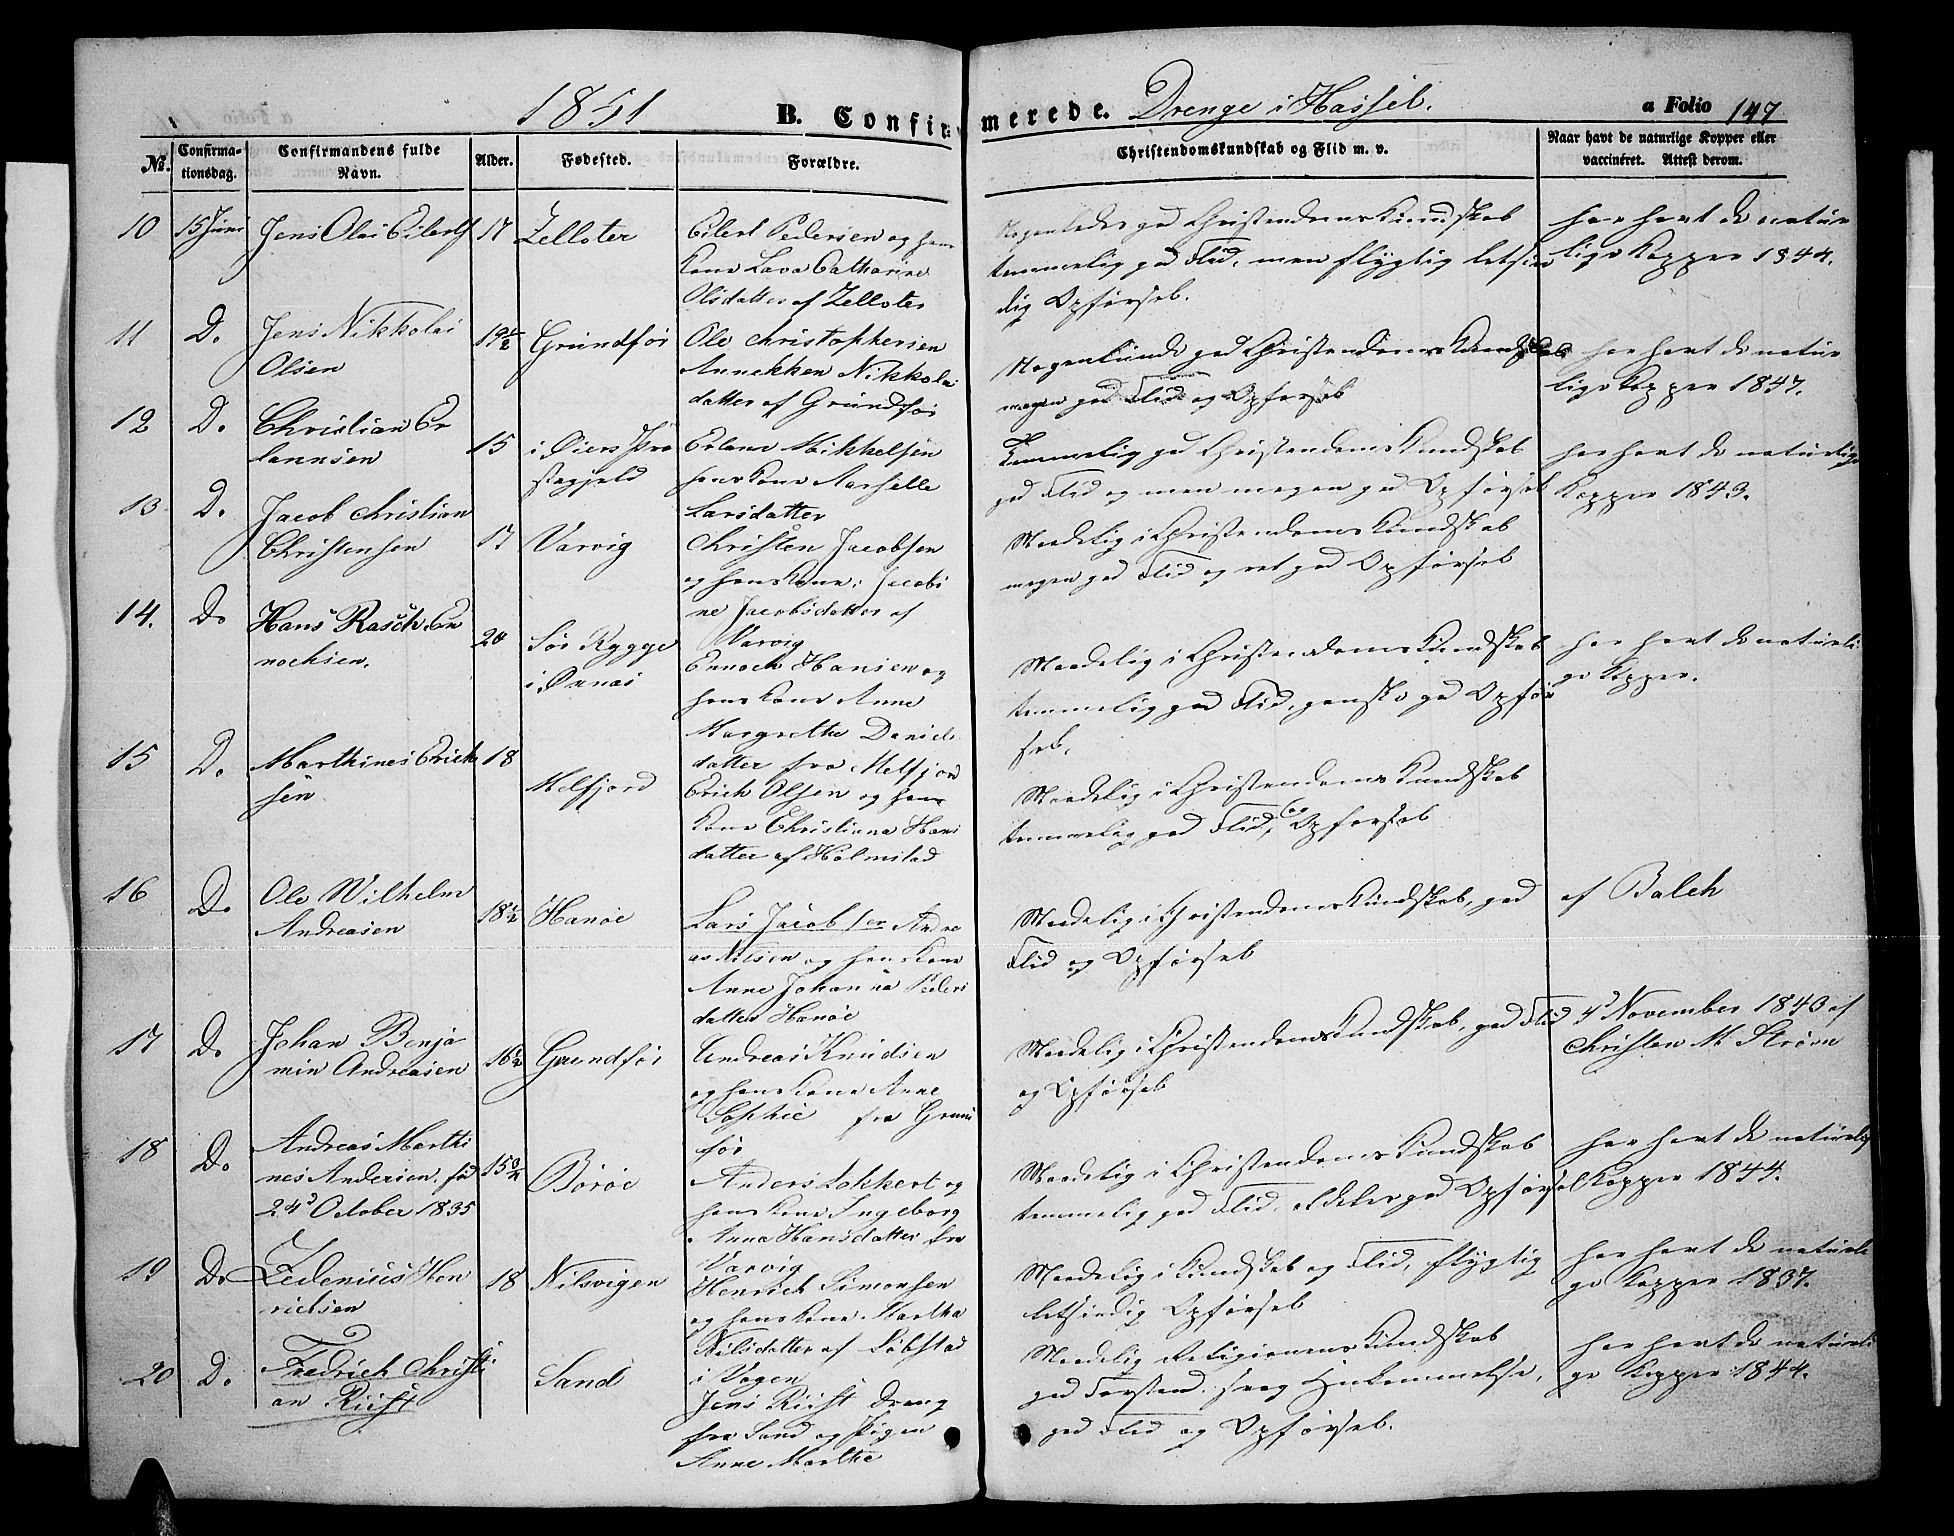 1851 B. Confirmerede. Drenge i Hassel. a Folio 147
No. Confirmationsdag. Confirmandens fulde Navn. Alder. Fødested. Forældre. Christendomskundskab og Flid m. v. Naar havt de naturlige Kopper eller vaccinéret. Attest derom.
10 15 Juni Jens Olai Eilerts 17 Zelloter
Eilert Pedersen og hans
Kone Lava Catharine
Olsdatter af Zelloter
god Christendoms Kundskab
temmelig god Flid, men flygtig letsin
dig Opførsel.
har havt de natur
lige Kopper 1844.
11 D. Jens Nikkolai
Olsen
19½ Grundfør
Ole Christophersen
Annekken Nikkolai
datter af Grundfør
Nogenlunde god Christendoms Kundskab
megen god Flid og Opførsel
har havt de natur
lige Kopper 1847.
12 D. Christian Er
lannsen
15 i Øiers Præ
stegjeld
Erland Mikkelsen
hans Kone
Larsdatter
Temmelig god Christendoms Kundskab
god Flid og men megen god Opførsel
har havt de naturlige
Kopper 1843.
13 D. Jacob Christian
Christensen
17 Varvig
Christen Jacobsen
og hans Kone Jacobi
ne Jacobsdatter af
Varvig
Maadelig i Christendoms Kundskab
megen god Flid og ret god Opførsel
14. D. Hans Rasch En
nochsen.
20 Sør Rygge
i Ønnes
Ennoch Hansen og
hans Kone Anne
Margrethe Daniels
datter fra Melfjor
Maadelig i Christendoms Kundskab
temmelig god Flid, ganske god Opfør
sel.
har havt de naturli
ge Kopper.
15 D. Marthines Erich
sen
18 Melfjord
Erich Olsen og hans
Kone Christianna Hans
datter af Holmstad
Maadelig i Christendoms Kundskab
temmelig god Flid, og Opførsel
16 D. Ole Wilhelm
Andreasen
18½ Hanøe
Lars Jacobsen Andre
as Nilsen og hans Kone
Anne Johanna Peders
datter Hanøe
Maadelig i Christendoms Kundskab, god
Flid og Opførsel
af Balch
17 D. Johan Benja
min Andreasen
16½ Grundfør
Andreas Knudsen
og hans Kone Anne
Sophie fra Grun
før
Maadelig i Christendoms Kundskab, god Flid
og Opførsel
4d November 1840 af
Christen M. Strøm
18 D. Andreas Marthi
nes Andersen, fød
24d October 1835
15 Børøe
Anders Lokkert og
hans Kone Ingeborg
Anna Hansdatter fra
Varvig
Maadelig i Christendoms Kundskab
temmelig god Flid, god Opførsel
har havt de naturlige
Kopper 1844.
19 D. Zedenius Hen
richsen
18 Nilsvigen
Henrich Simonsen
og hans Kone Martha
Nilsdatter af Løbstad
i Vogen
Maadelig i Kundskab og Flid, flygtig
letsindig Opførsel
har havt de naturli
ge Kopper 1837.
20 D. Fredrich Christi
an Riist
Sand
Jens Riist Dreng
fra Sand og Pigen
Anne Marthe
Maadelig Religions Kundskab
god Forstand, svag Hukommelse,
god Flid og Opførsel.
har havt de naturli
ge Kopper 1844.